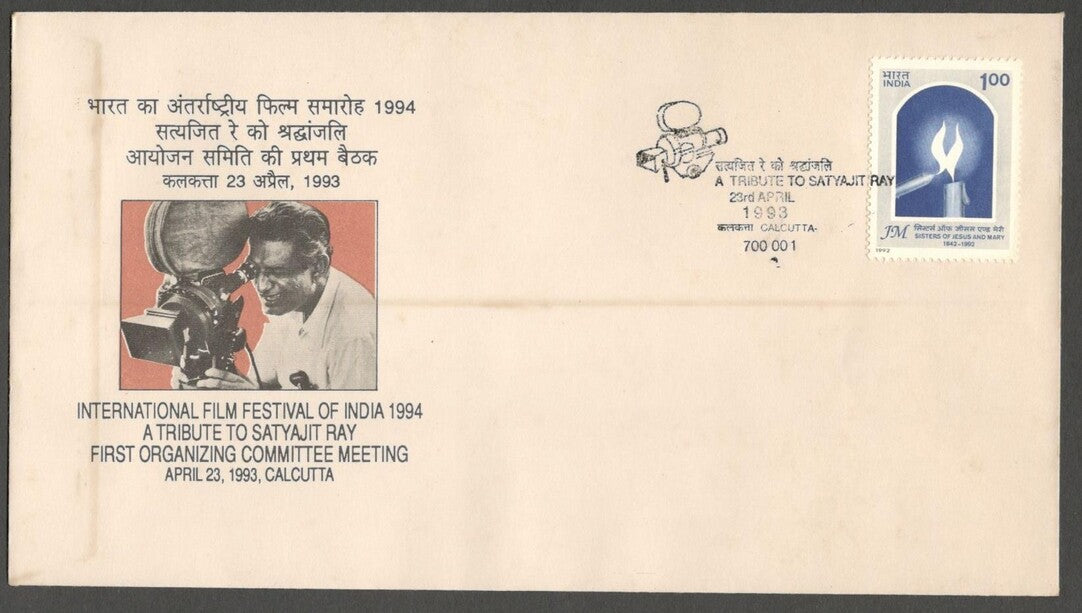 भारत का अंतर्राष्ट्रीय फिल्म समारोह 1994
सत्यजित रे को श्रद्धांजलि
आयोजन समिति की प्रथम बैठक
कलकत्ता 23 अप्रैल, 1993
INTERNATIONAL FILM FESTIVAL OF INDIA 1994
A TRIBUTE TO SATYAJIT RAY
FIRST ORGANIZING COMMITTEE MEETING
APRIL 23, 1993, CALCUTTA
सत्यजित रे को श्रद्धांजलि
A TRIBUTE TO SATYAJIT RAY
23rd APRIL
1993
कलकत्ता CALCUTTA-
700 001
भारत
INDIA
100
JM सिस्टर्स ऑफ जीसस एण्ड मेरी
SISTERS OF JESUS AND MARY
1842-1992
1992